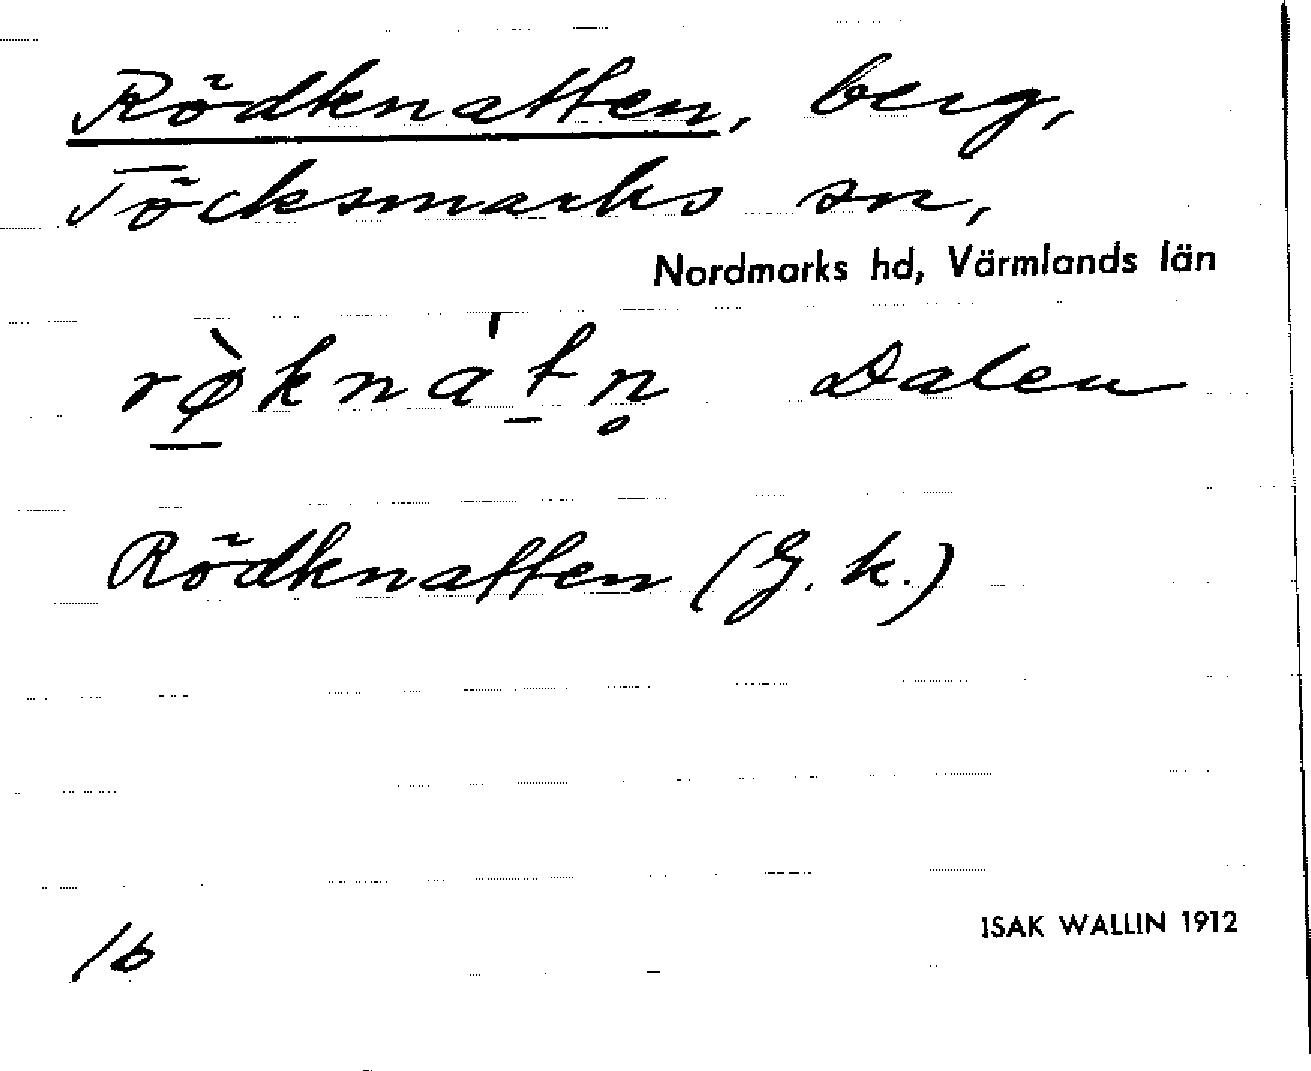 Rödknatten, berg,
Töcksmarks sn,
Nordmarks hd, Värmlands län
rø̠̀knát̠n̥ Dalen
Rödknatten (G. k.)
16
ISAK WALLIN 1912